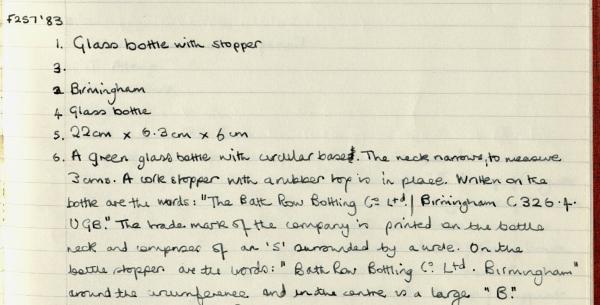 F257'83
1. Glass bottle with stopper
3.
2 Birmingham
4 Glass bottle
5. 22cm x 6.3cm x 6cm
6. A green glass bottle with circular base. The neck narrows, to measure
3cms. A cork stopper with a rubber top is in place. Written on the
bottle are the words: "The Bath Row Bottling Co Ltd / Birmingham C326.4.
UGB." The trade mark of the company is printed on the bottle
neck and comprises of an 'S' surrounded by a circle. On the
bottle stopper are the words: "Bath Row Bottling Co. Ltd. Birmingham"
around the circumference and in the centre is a large "B."